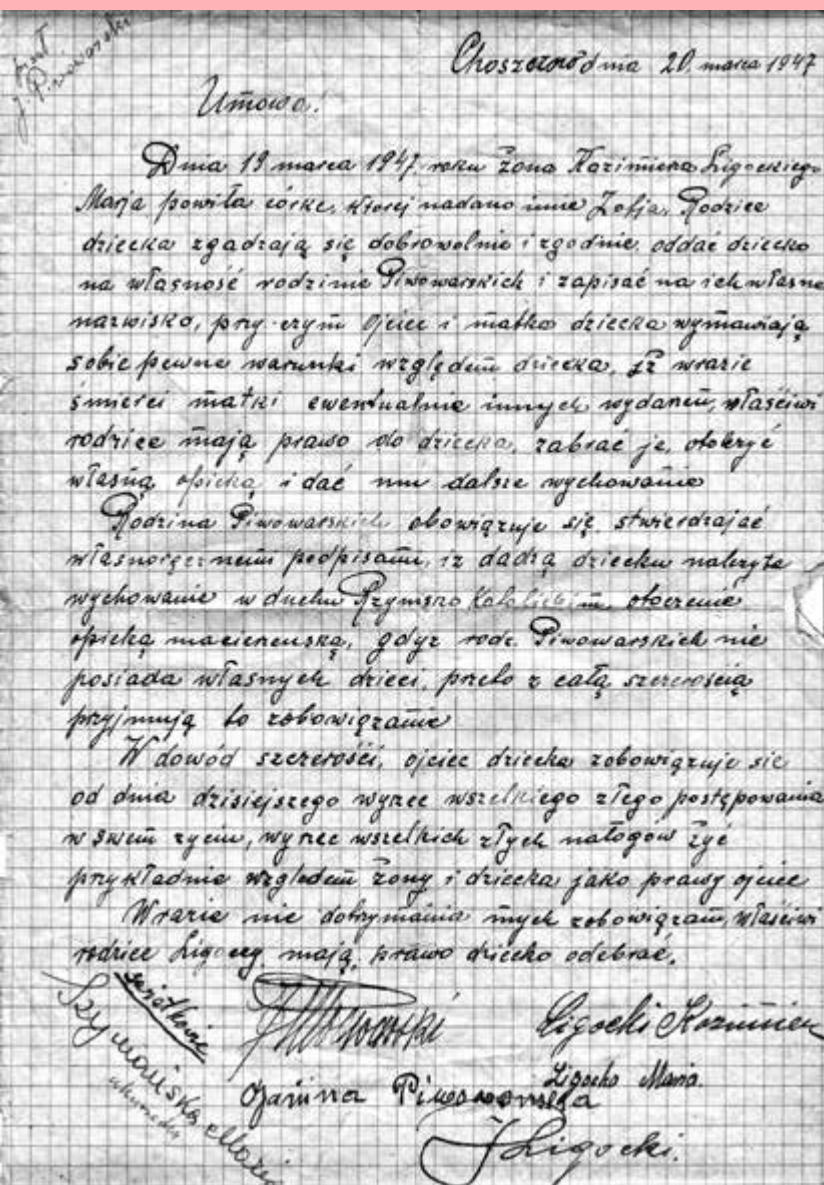 J. Piwowarski
Choszczno dnia 20. marca 1947
Umowa.
Dnia 19 marca 1947 roku żona Kazimierza Ligockiego
Marja powiła córkę, której nadano imię Zofja. Rodzice
dziecka zgadzają się dobrowolnie i zgodnie oddać dziecko
na własność rodzinie Piwowarskich i zapisać na ich własne
nazwisko, przy czym Ojciec i matka dziecka wymawiają
sobie pewne warunki względem dziecka, iż wrazie
śmierci matki ewentualnie innych wydarzeń, właściwi
rodzice mają prawo do dziecka, zabrać je, otoczyć
własną opieką i dać mu dalsze wychowanie
Rodzina Piwowarskich obowiązuje się stwierdzajać
własnoręcznemi podpisami, iż dadzą dziecku należyte
wychowanie w duchu Rzymsko Katolickim, otoczenie
opieką macierzeńską, gdyż rodz. Piwowarskich nie
posiada własnych dzieci, przeto z całą szczerością
przyjmują to zobowiązanie
W dowód szczerości, ojciec dziecka zobowiązuje się
od dnia dzisiejszego wyrzec wszelkiego złego postępowania
w swem życiu, wyrzec wszelkich złych nałogów żyć
przykładnie względem żony i dziecka jako prawy ojciec
Wrazie nie dotrzymania mych zobowiązań, właściwi
rodzice Ligoccy mają prawo dziecko odebrać.
świadkowie
Szymańska Maria
Piwowarski
Janina Piwowarska
Ligocki Kazimierz
Ligocka Maria.
J Ligocki.